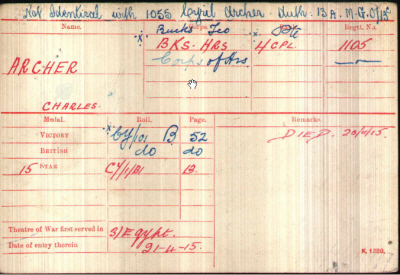 Not Identical with 1055 Corpl Archer Auth. B A. M.G.O/15
Name. Corps. Regtl. No.
x. Bucks Yeo x. Pte
ARCHER BKS. HRS L/CPL. 1105
Corps of Hrs
CHARLES.
Medal. Roll. Page. Remarks.
VICTORY x CY/101 B 52 DIED. 20/11/15.
BRITISH do do
15 STAR CY/1/B1 B.
Theatre of War first served in 3/Egypt.
Date of entry therein 21-4-15.
K. 1380.